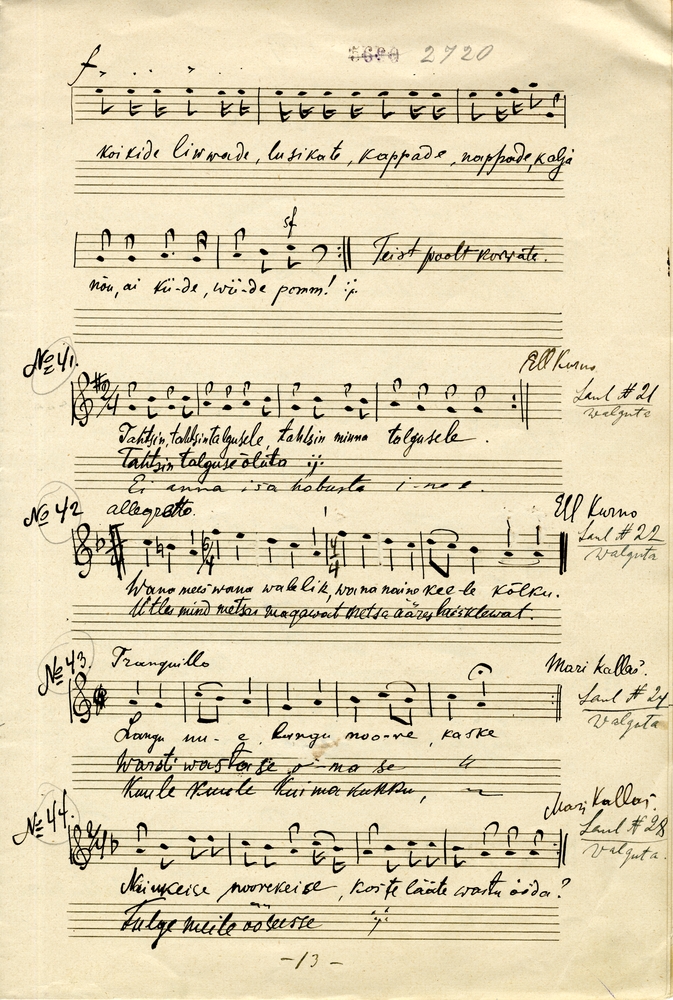 5680 2720
f.
koikide liwwade, lusikate, kappade, nappade, kalja
sf
nõu, ai kü-de, wü-de pomm! :/:
Teist poolt korrate.
№ 41.
Ell Kurno
Laul # 21
walguta
Tahtsin, tahtsin talgusele, tahtsin minna talgusele.
Tahtsin talguse õluta :/:
Ei anna isa hobusta i-no e.
№ 42
allegretto.
Ell Kurno
Laul # 22
walguta
Wana mees wana walelik, wana naine kee-le kõlku.
Ütles mind metsas magawat metsa ääres luisklewat.
№ 43.
Tranquillo
Mari Kallas.
Laul # 24
walguta
Langu nu-e, kungu noo-re, kaske
"
Kuule kuule kuima kukku,
№ 44.
Mari Kallas.
Laul # 28
walguta.
Neiukeise noorekeise, koste lääte wastu ööda?
Tulge meile öösesse :/:
-13-